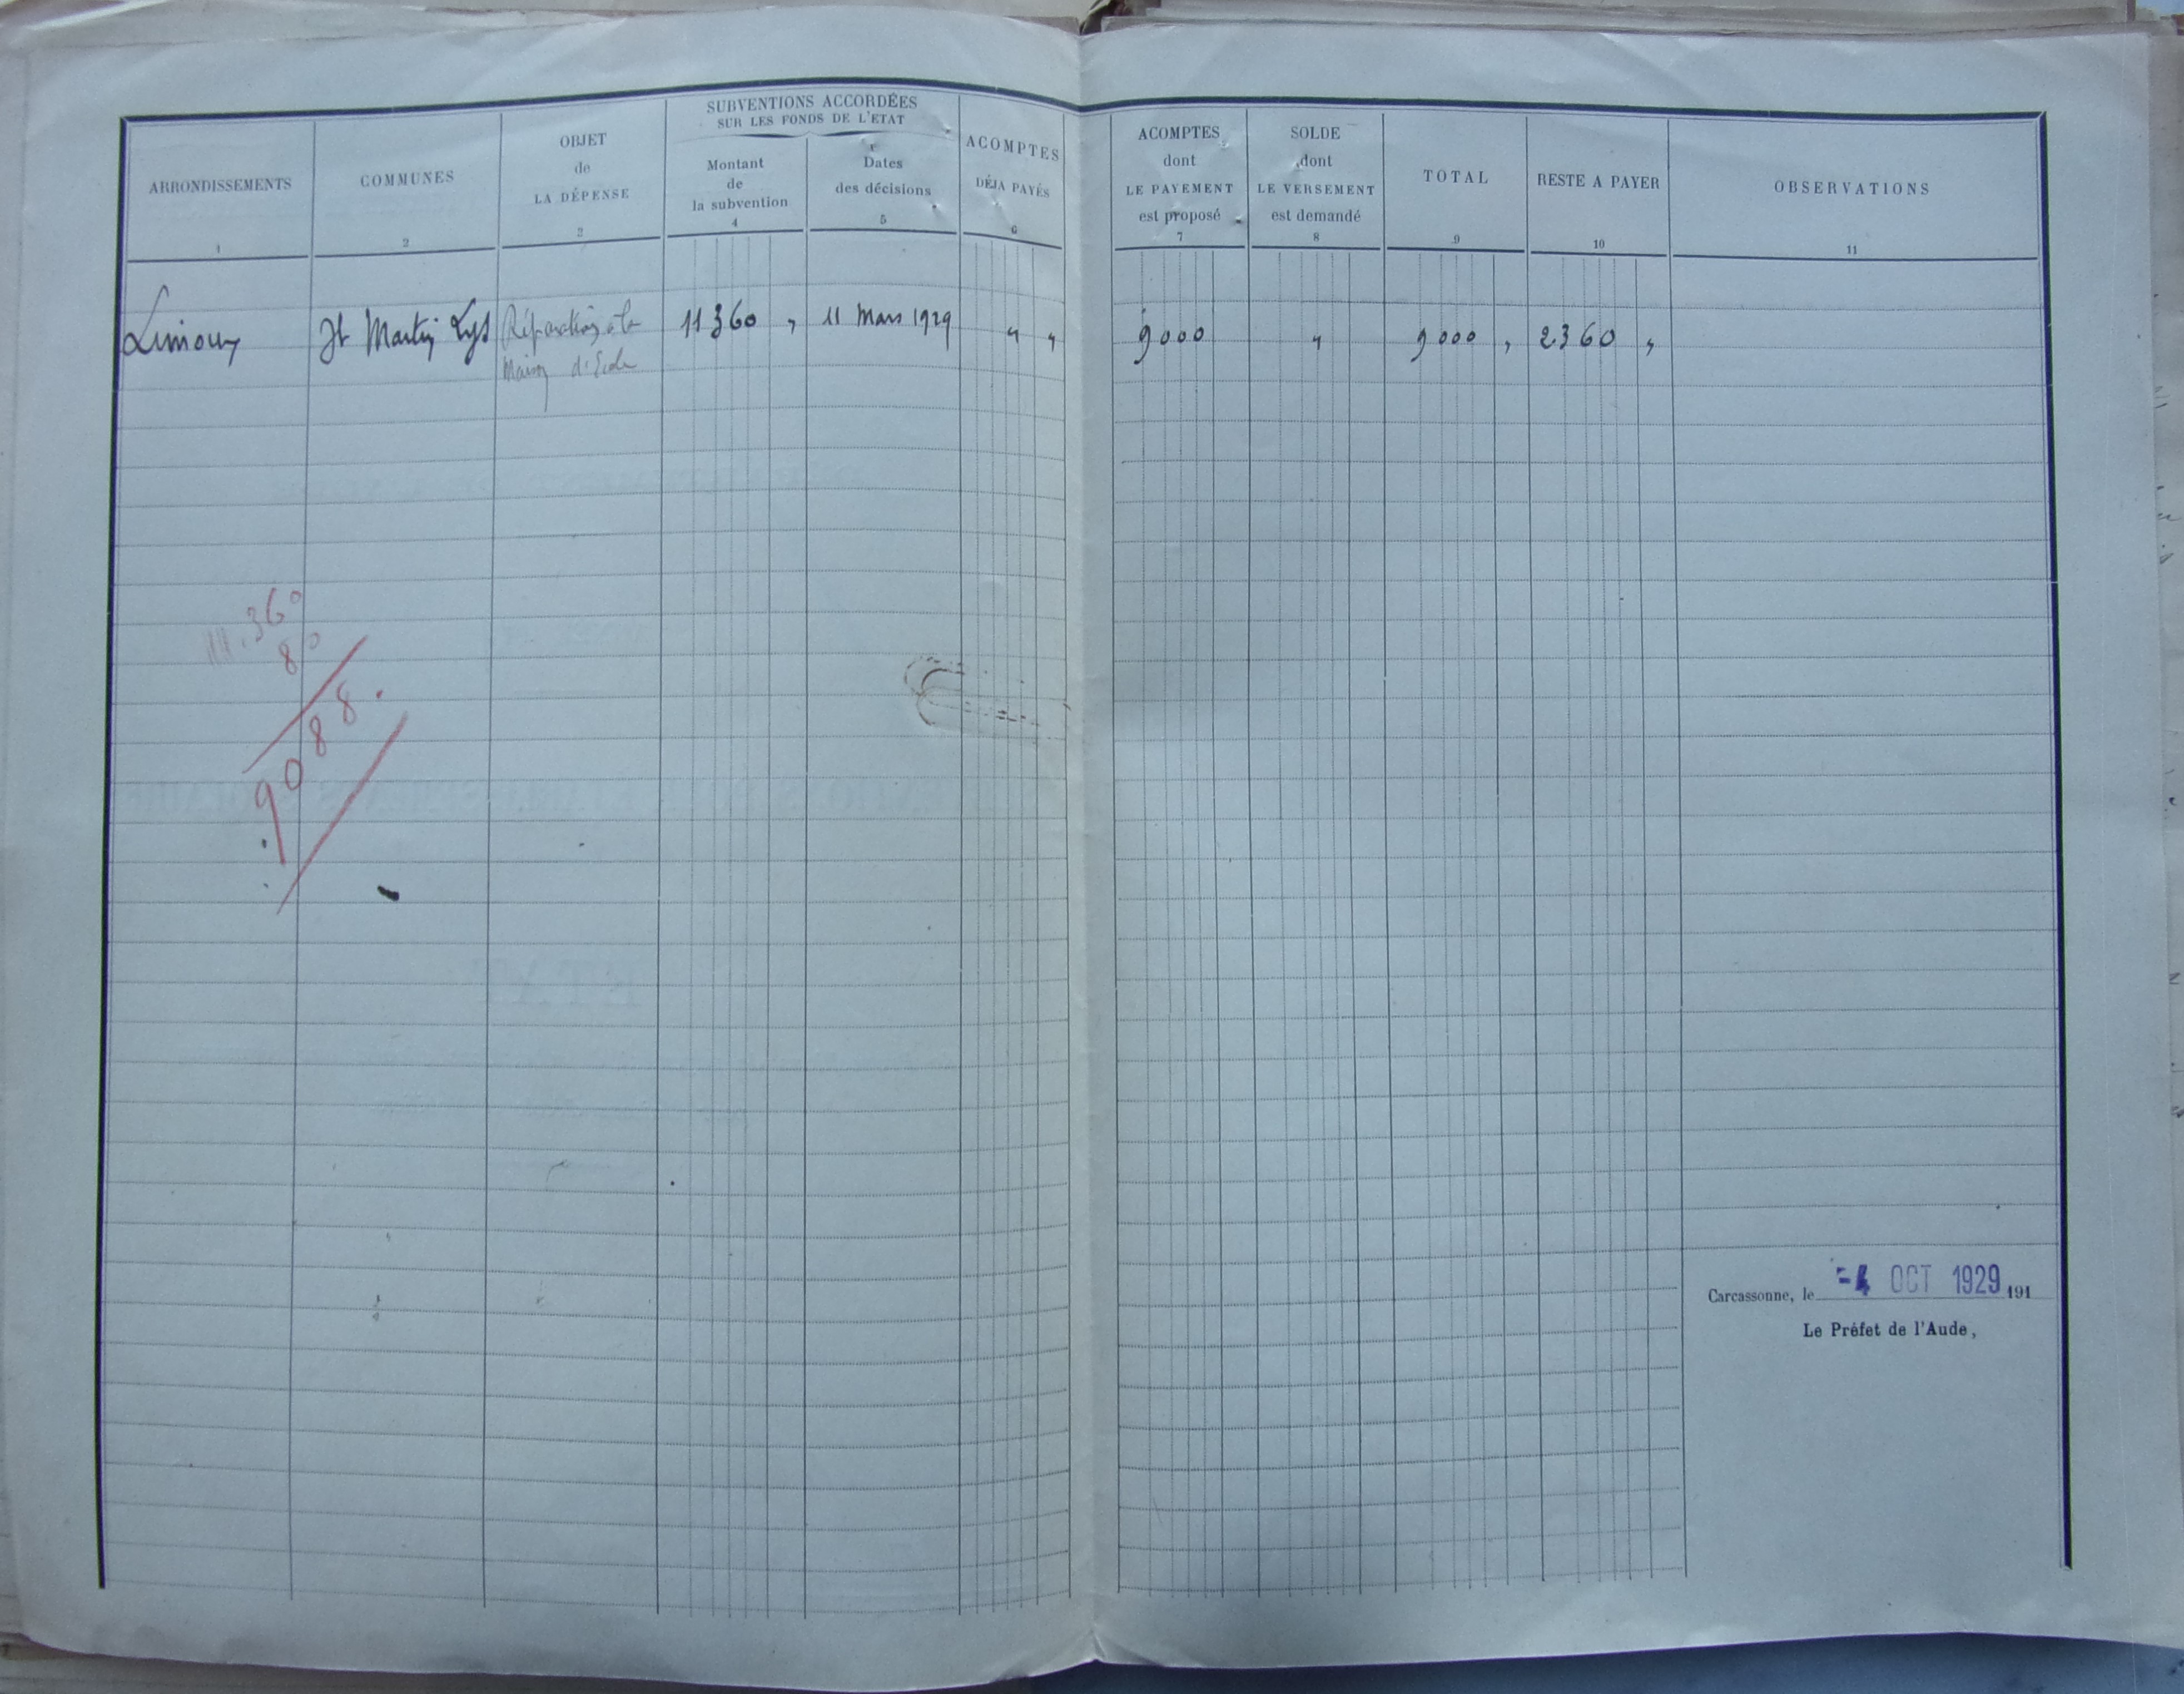 SUBVENTIONS ACCORDÉES
SUR LES FONDS DE L'ETAT
ARRONDISSEMENTS
1
COMMUNES
2
OBJET
de
LA DÉPENSE
3
Montant
de
la subvention
4
Dates
des décisions
5
ACOMPTES
DÉJA PAYÉS
6
ACOMPTES
dont
LE PAYEMENT
est proposé
7
SOLDE
dont
LE VERSEMENT
est demandé
8
TOTAL
9
RESTE A PAYER
10
OBSERVATIONS
11
Limoux
St Martin Lys
Réparations à la
Maison d'Ecole
11360 "
11 Mars 1929
" "
9000
"
9000 "
2360 "
11.360
80
9088.
Carcassonne, le -4 OCT 1929 191
Le Préfet de l'Aude,